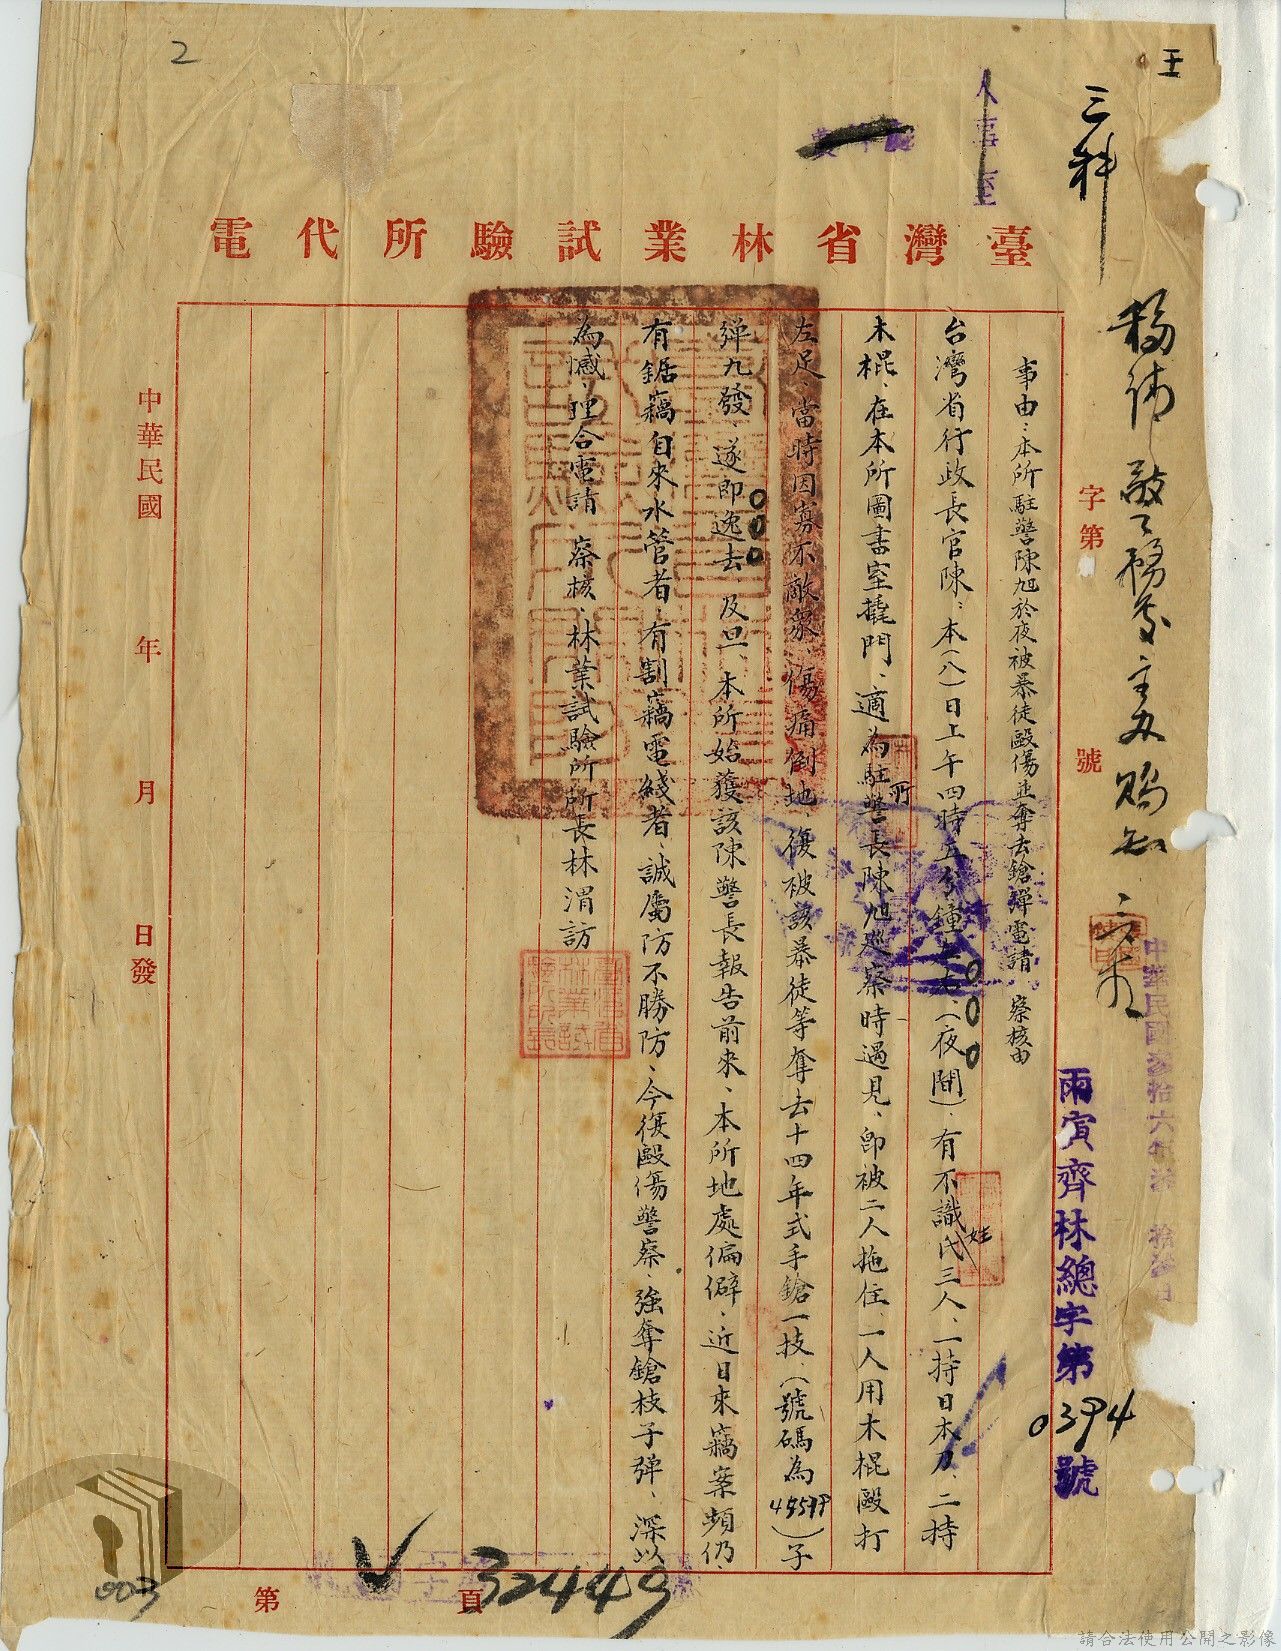 2
王
人事室
三科
臺灣省林業試驗所代電
字第　號
雨寅齊林總字第0394號
事由：本所駐警陳旭於夜被暴徒毆傷並奪去鎗彈電請　察核由
台灣省行政長官陳：本(八)日上午四時五分鐘左右、(夜間)、有不識姓氏三人、一持日本刀、二持
木棍、在本所圖書室撬門、適為駐所警長陳旭巡察時遇見、即被二人拖住、一人用木棍毆打
左足、當時因寡不敵眾、傷痛倒地、復被該暴徒等奪去十四年式手鎗一技、(號碼為)子
彈九發、遂即逸去、及旦、本所始獲該陳警長報告前來、本所地處偏僻、近日來竊案頻仍、
有鋸竊自來水管者、有割竊電綫者、誠屬防不勝防、今復毆傷警察、強奪鎗枝子彈、深以
為憾、理合電請　察核、林業試驗所所長林渭訪
臺灣省林業試驗所所長
中華民國　年　月　日發
第　頁
32449
003
請合法使用公開之影像